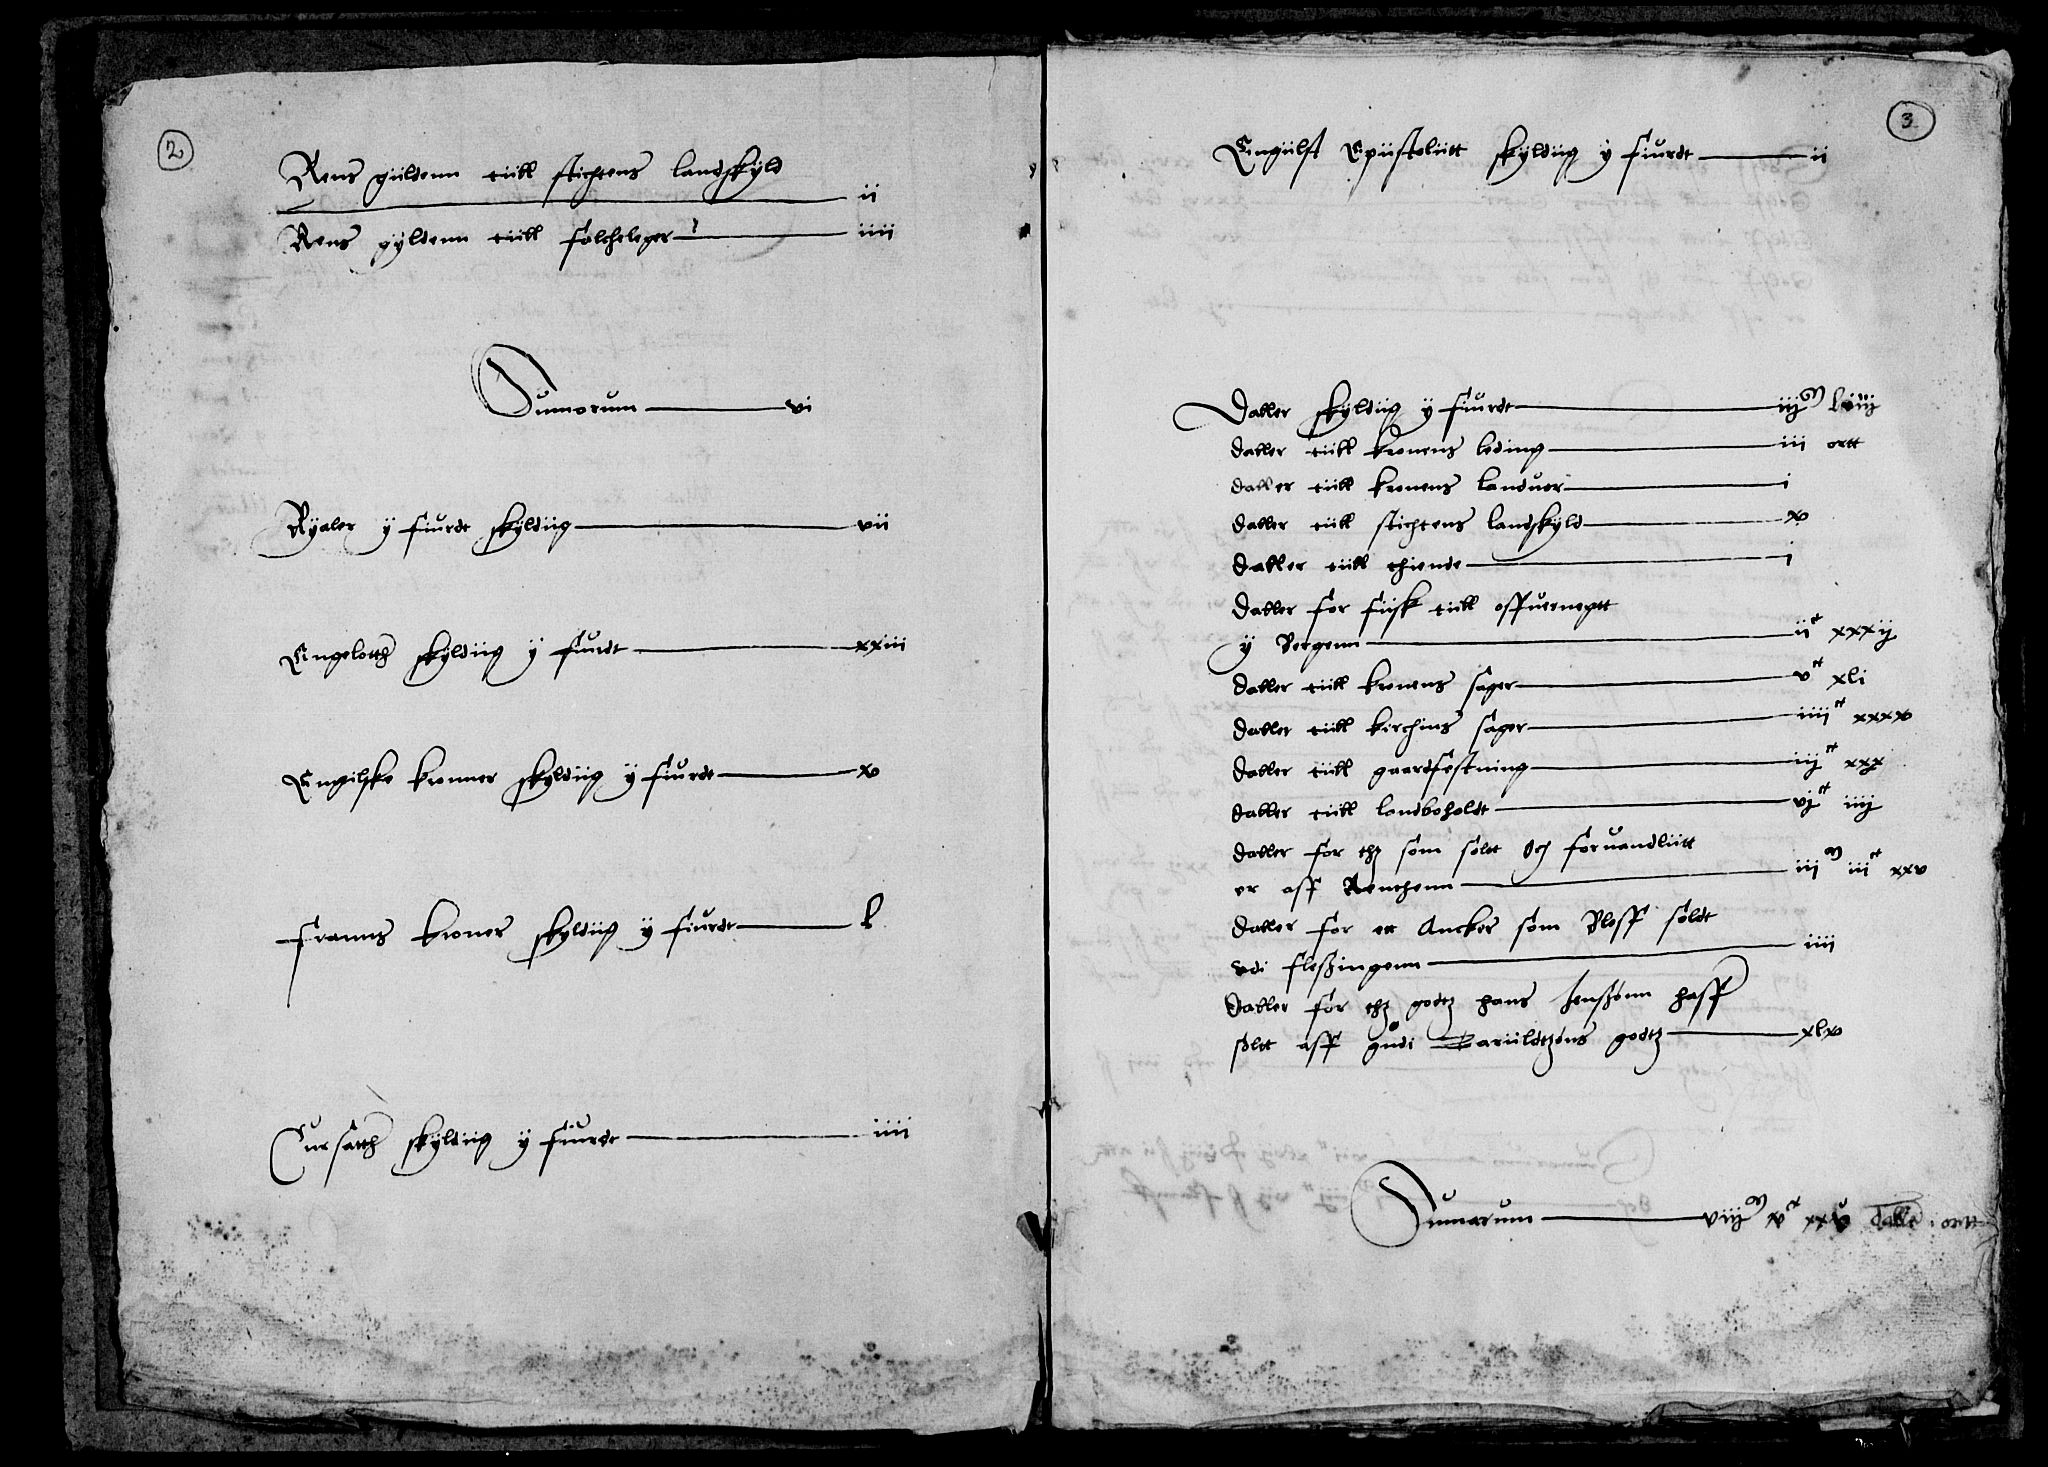 2
Rens güldenn tiill stichtens landskyld
ii
Rens gyldenn tiill folcheleger iiii
Sumorum vi
Ryaler ÿ fiurdt skyldiig vii
Engelotth skyldiig ÿ fiurdt xxiii
Engilske kronner skyldiig ÿ fiurdt xv
franns kroner skyldiig ÿ fiurdt l
Cursatth skyldiig ÿ fiurdt iiii
3
Engiilst Epiistoliitt skyldiig ÿ fiurdt ii
Daller skyldiig ÿ fiurdt iijM
daller tiill kronens leding iii ortt
daller tiill kronens landuer i
daller tiill stichtens landskyld xv
daller tiill thiende i
daller for fiisk tiill offuernegtt
ÿ Bergenn iict xxxij
daller tiill kronens sager vct xli
daller tiill kirchins sager iiiict xxxxv
daller tiill gaardfestning iijct xxx
daller tiill landboholdt vjct iiij
daller for thz som soltt Och foruandliitt
er aff Renthenn iiiM iiict xxv
daller for et Ancker som Bleff soldt
vdi fleßingenn iiii
daller for thz godtz hans Jenßønn haff
soltt aff gudi godtz xlv
Sumarum viijM vct xxv dalle i ortt